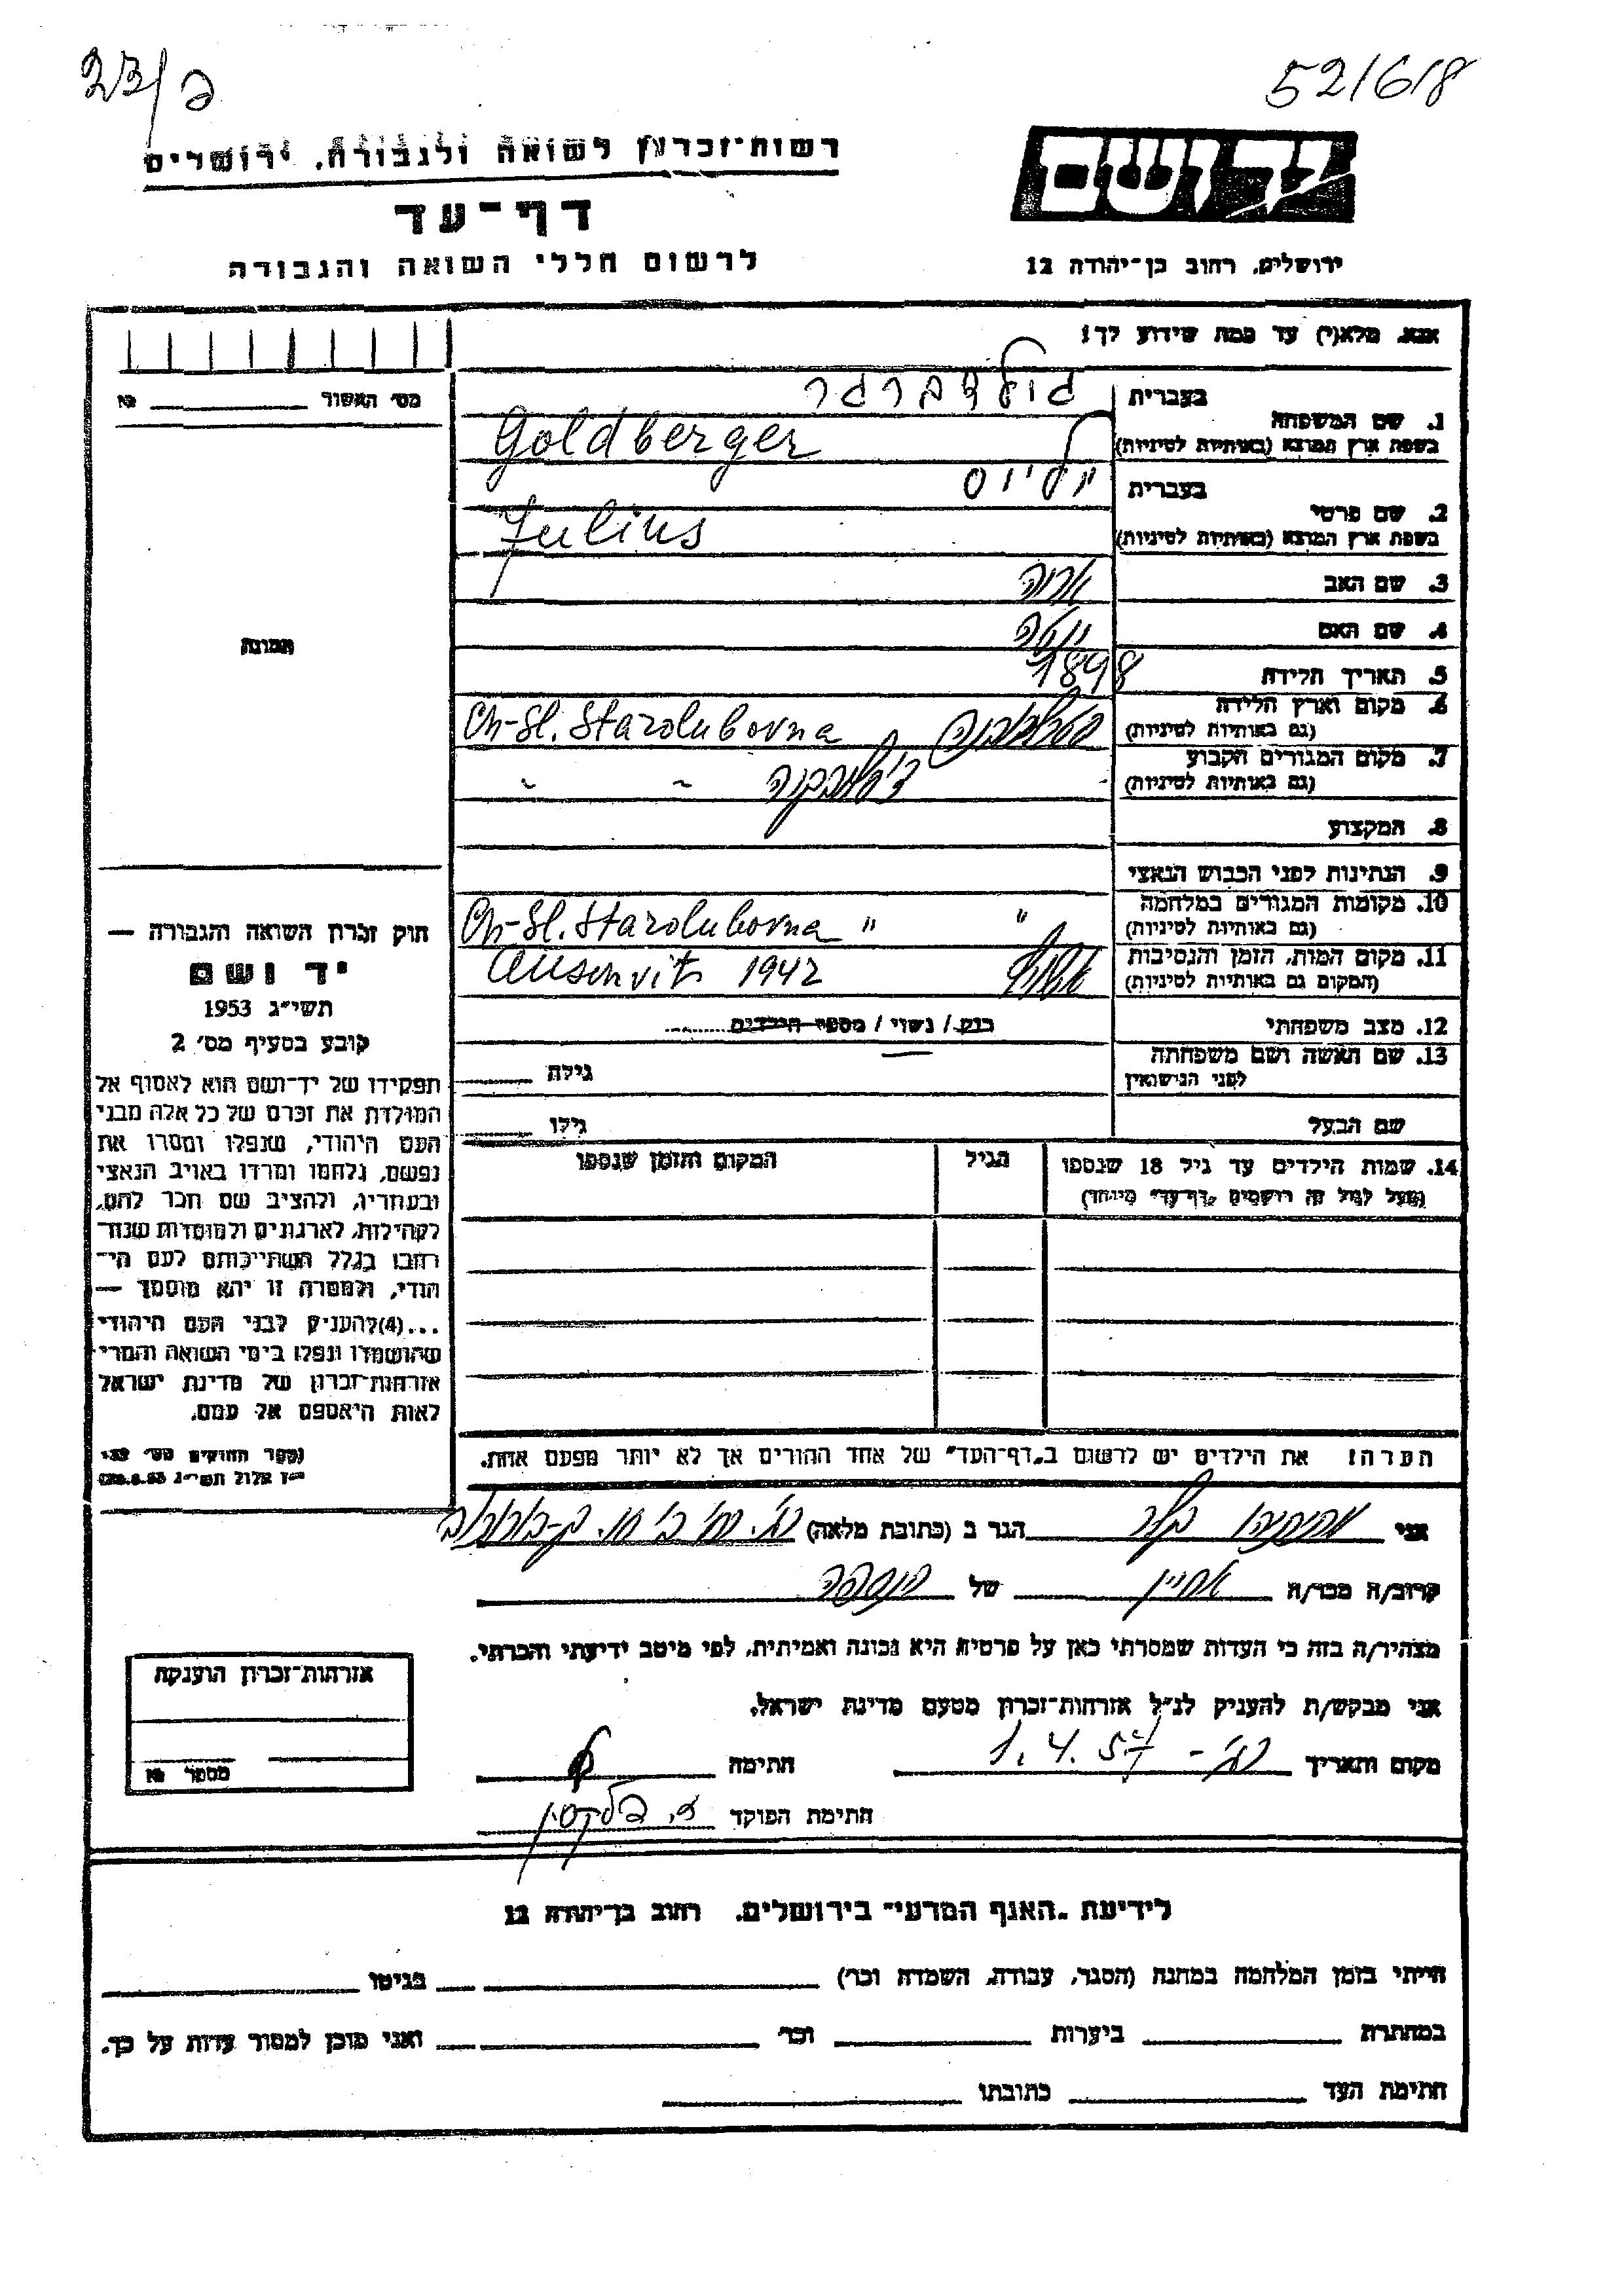 23/ג
52/6/8
רשות־זכרון לשואה ולגבורה, ירושלים
יד ושם
דף־עד
לרשום חללי השואה והגבורה
ירושלים, רחוב בן־יהודה 12
אנא, מלא(י) עד כמה שידוע לך!
מס׳ האשור № 
1. שם המשפחה בעברית גולדברגר
בשפת ארץ המוצא (באותיות לטיניות) Goldberger
2. שם פרטי בעברית יוליוס
בשפת ארץ המוצא (באותיות לטיניות) Julius
3. שם האב אריה
4. שם האם
תמונה
5. תאריך הלידה 1898
6. מקום וארץ הלידה
(גם באותיות לטיניות) Ch-Sl. Starolubovna
7. מקום המגורים הקבוע
(גם באותיות לטיניות)
8. המקצוע
9. הנתינות לפני הכבוש הנאצי
10. מקומות המגורים במלחמה
(גם באותיות לטיניות) Ch-Sl. Starolubovna " "
11. מקום המות, הזמן והנסיבות
(המקום גם באותיות לטיניות) Auschvitz 1942
12. מצב משפחתי רוק / נשוי / מספר הילדים
13. שם האשה ושם משפחתה
לפני הנישואין גילה
שם הבעל גילו
14. שמות הילדים עד גיל 18 שנספו הגיל המקום והזמן שנספו
(מעל לגיל זה רושמים „דף־עד" מיוחד)
חוק זכרון השואה והגבורה —
יד ושם
תשי״ג 1953
קובע בסעיף מס׳ 2
תפקידו של יד־ושם הוא לאסוף אל
המולדת את זכרם של כל אלה מבני
העם היהודי, שנפלו ומסרו את
נפשם, נלחמו ומרדו באויב הנאצי
ובעוזריו, ולהציב שם וזכר להם,
לקהילות, לארגונים ולמוסדות שנח־
רבו בגלל השתייכותם לעם הי־
הודי, ולמטרה זו יהא מוסמך —
...(4) להעניק לבני העם היהודי
שהושמדו ונפלו בימי השואה והמרי
אזרחות־זכרון של מדינת ישראל
לאות היאספם אל עמם.
(ספר החוקים מס׳ 132
י״ז אלול תשי״ג 28.8.53)
הערה! את הילדים יש לרשום ב„דף־העד" של אחד ההורים אך לא יותר מפעם אחת.
אני הגר ב (כתובת מלאה)
קרוב/ה מכר/ה אחיין של הנספה
מצהיר/ה בזה כי העדות שמסרתי כאן על פרטיה היא נכונה ואמיתית, לפי מיטב ידיעתי והכרתי.
אני מבקש/ת להעניק לנ״ל אזרחות־זכרון מטעם מדינת ישראל.
מקום ותאריך 1.4.57 חתימה
חתימת הפוקד
אזרחות־זכרון הוענקה
מספר №
לידיעת „האגף המדעי" בירושלים, רחוב בן־יהודה 12
הייתי בזמן המלחמה במחנה (הסגר, עבודה, השמדה וכו׳) בגיטו
במחתרת ביערות וכו׳ ואני מוכן למסור עדות על כך.
חתימת העד כתובתו